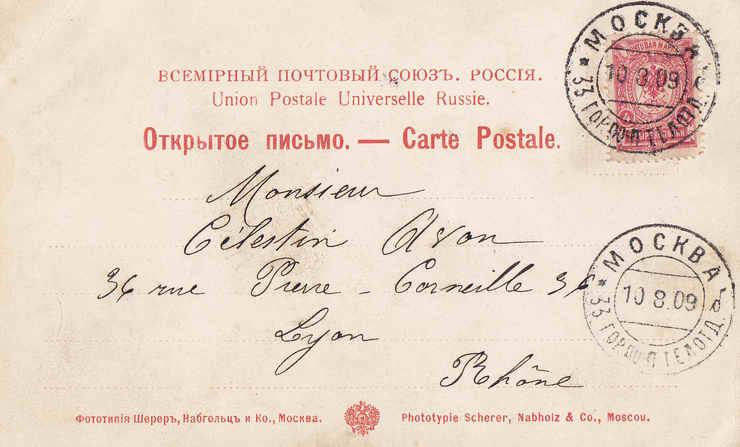 ВСЕМІРНЫЙ ПОЧТОВЫЙ СОЮЗЪ. РОССІЯ.
Union Postale Universelle Russie.
Открытое письмо. — Carte Postale.
МОСКВА
10 8 09
33 ГОРОД П ТЕЛ ОТД.
Monsieur
Célestin Avon
36 rue Pierre - Corneille 36
Lyon
Rhône
МОСКВА
10 8 09
33 ГОРОД П ТЕЛ ОТД.
Фототипія Шереръ, Набгольцъ и Ко., Москва.
Phototypie Scherer, Nabholz & Co., Moscou.